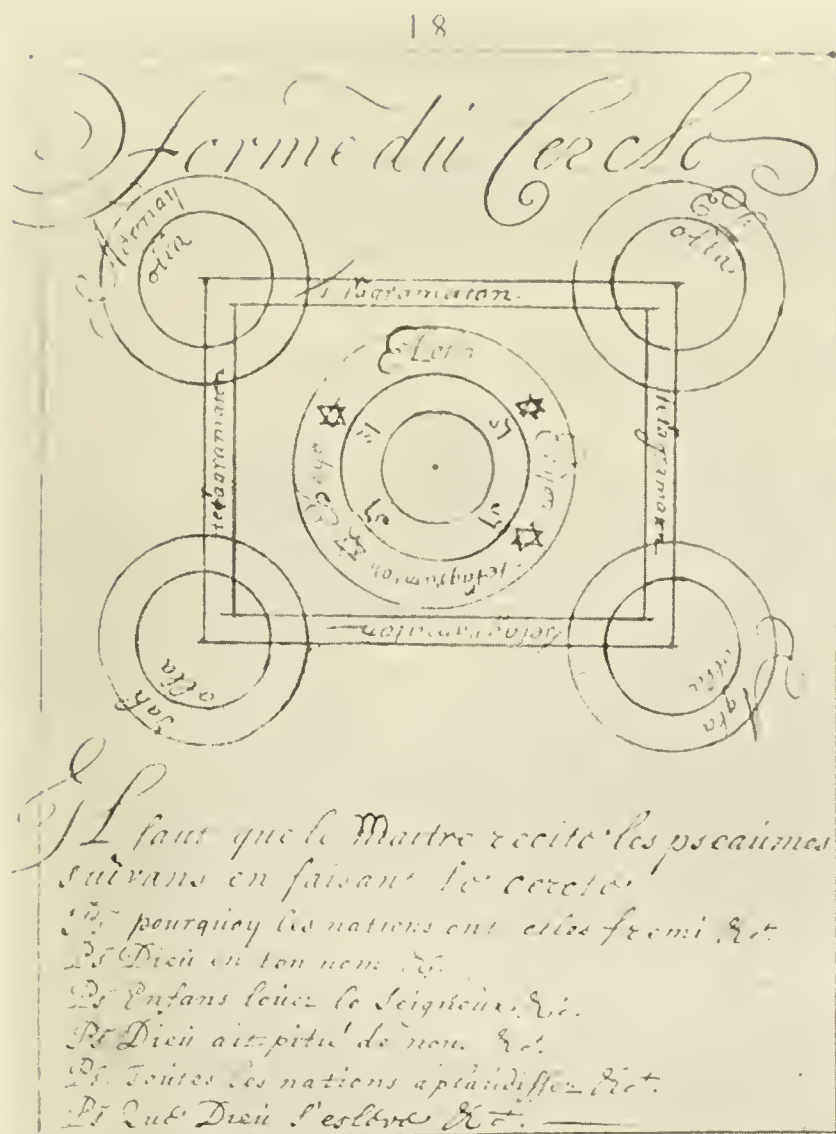 18
forme du Cercle
Adonay
otia
otia
tetragramaton
tetagramaton
tetagramaton
tetagramaton
Jah
alla
Agla
Il faut que le Maitre recite les pseaumes
suivans en faisant le cercle
Ps pourquoy les nations ont elles fremi &c
Ps Dieu en ton nom &c
Ps Enfans louez le Seigneur. &c.
Ps Dieu ait pitié de nous &c.
Ps Toutes les nations aplaudissez &c.
Ps Que Dieu s'esleve &c.